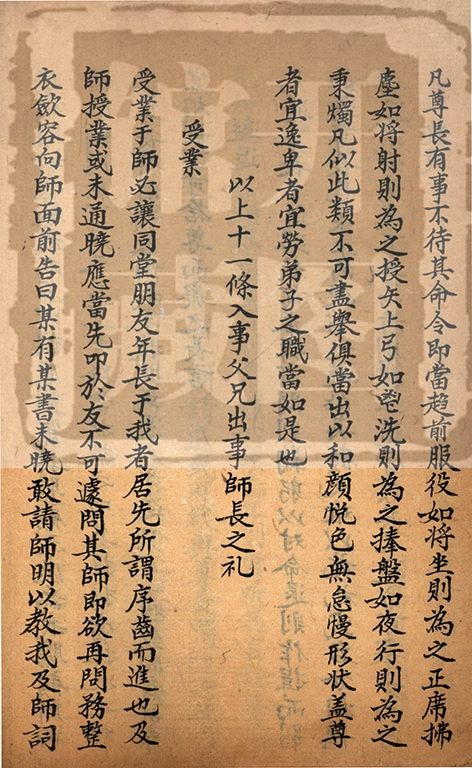 凡尊長有事不待其命令即當趍前服役如将坐則為之正席拂
塵如将射則為之授矢上弓如盥洗則為之捧盤如夜行則為之
秉燭凡似此類不可盡舉俱當出以和顔悦色無怠慢形状盖尊
者宜逸卑者宜勞弟子之職當如是也
以上十一條入事父兄出事師長之礼
受業
受業于師必讓同堂朋友年長于我者居先所謂序齒而進也及
師授業或未通曉應當先叩於友不可遽問其師即欲再問務整
衣斂容向師面前告曰某有某書未曉敢請師明以教我及師詞